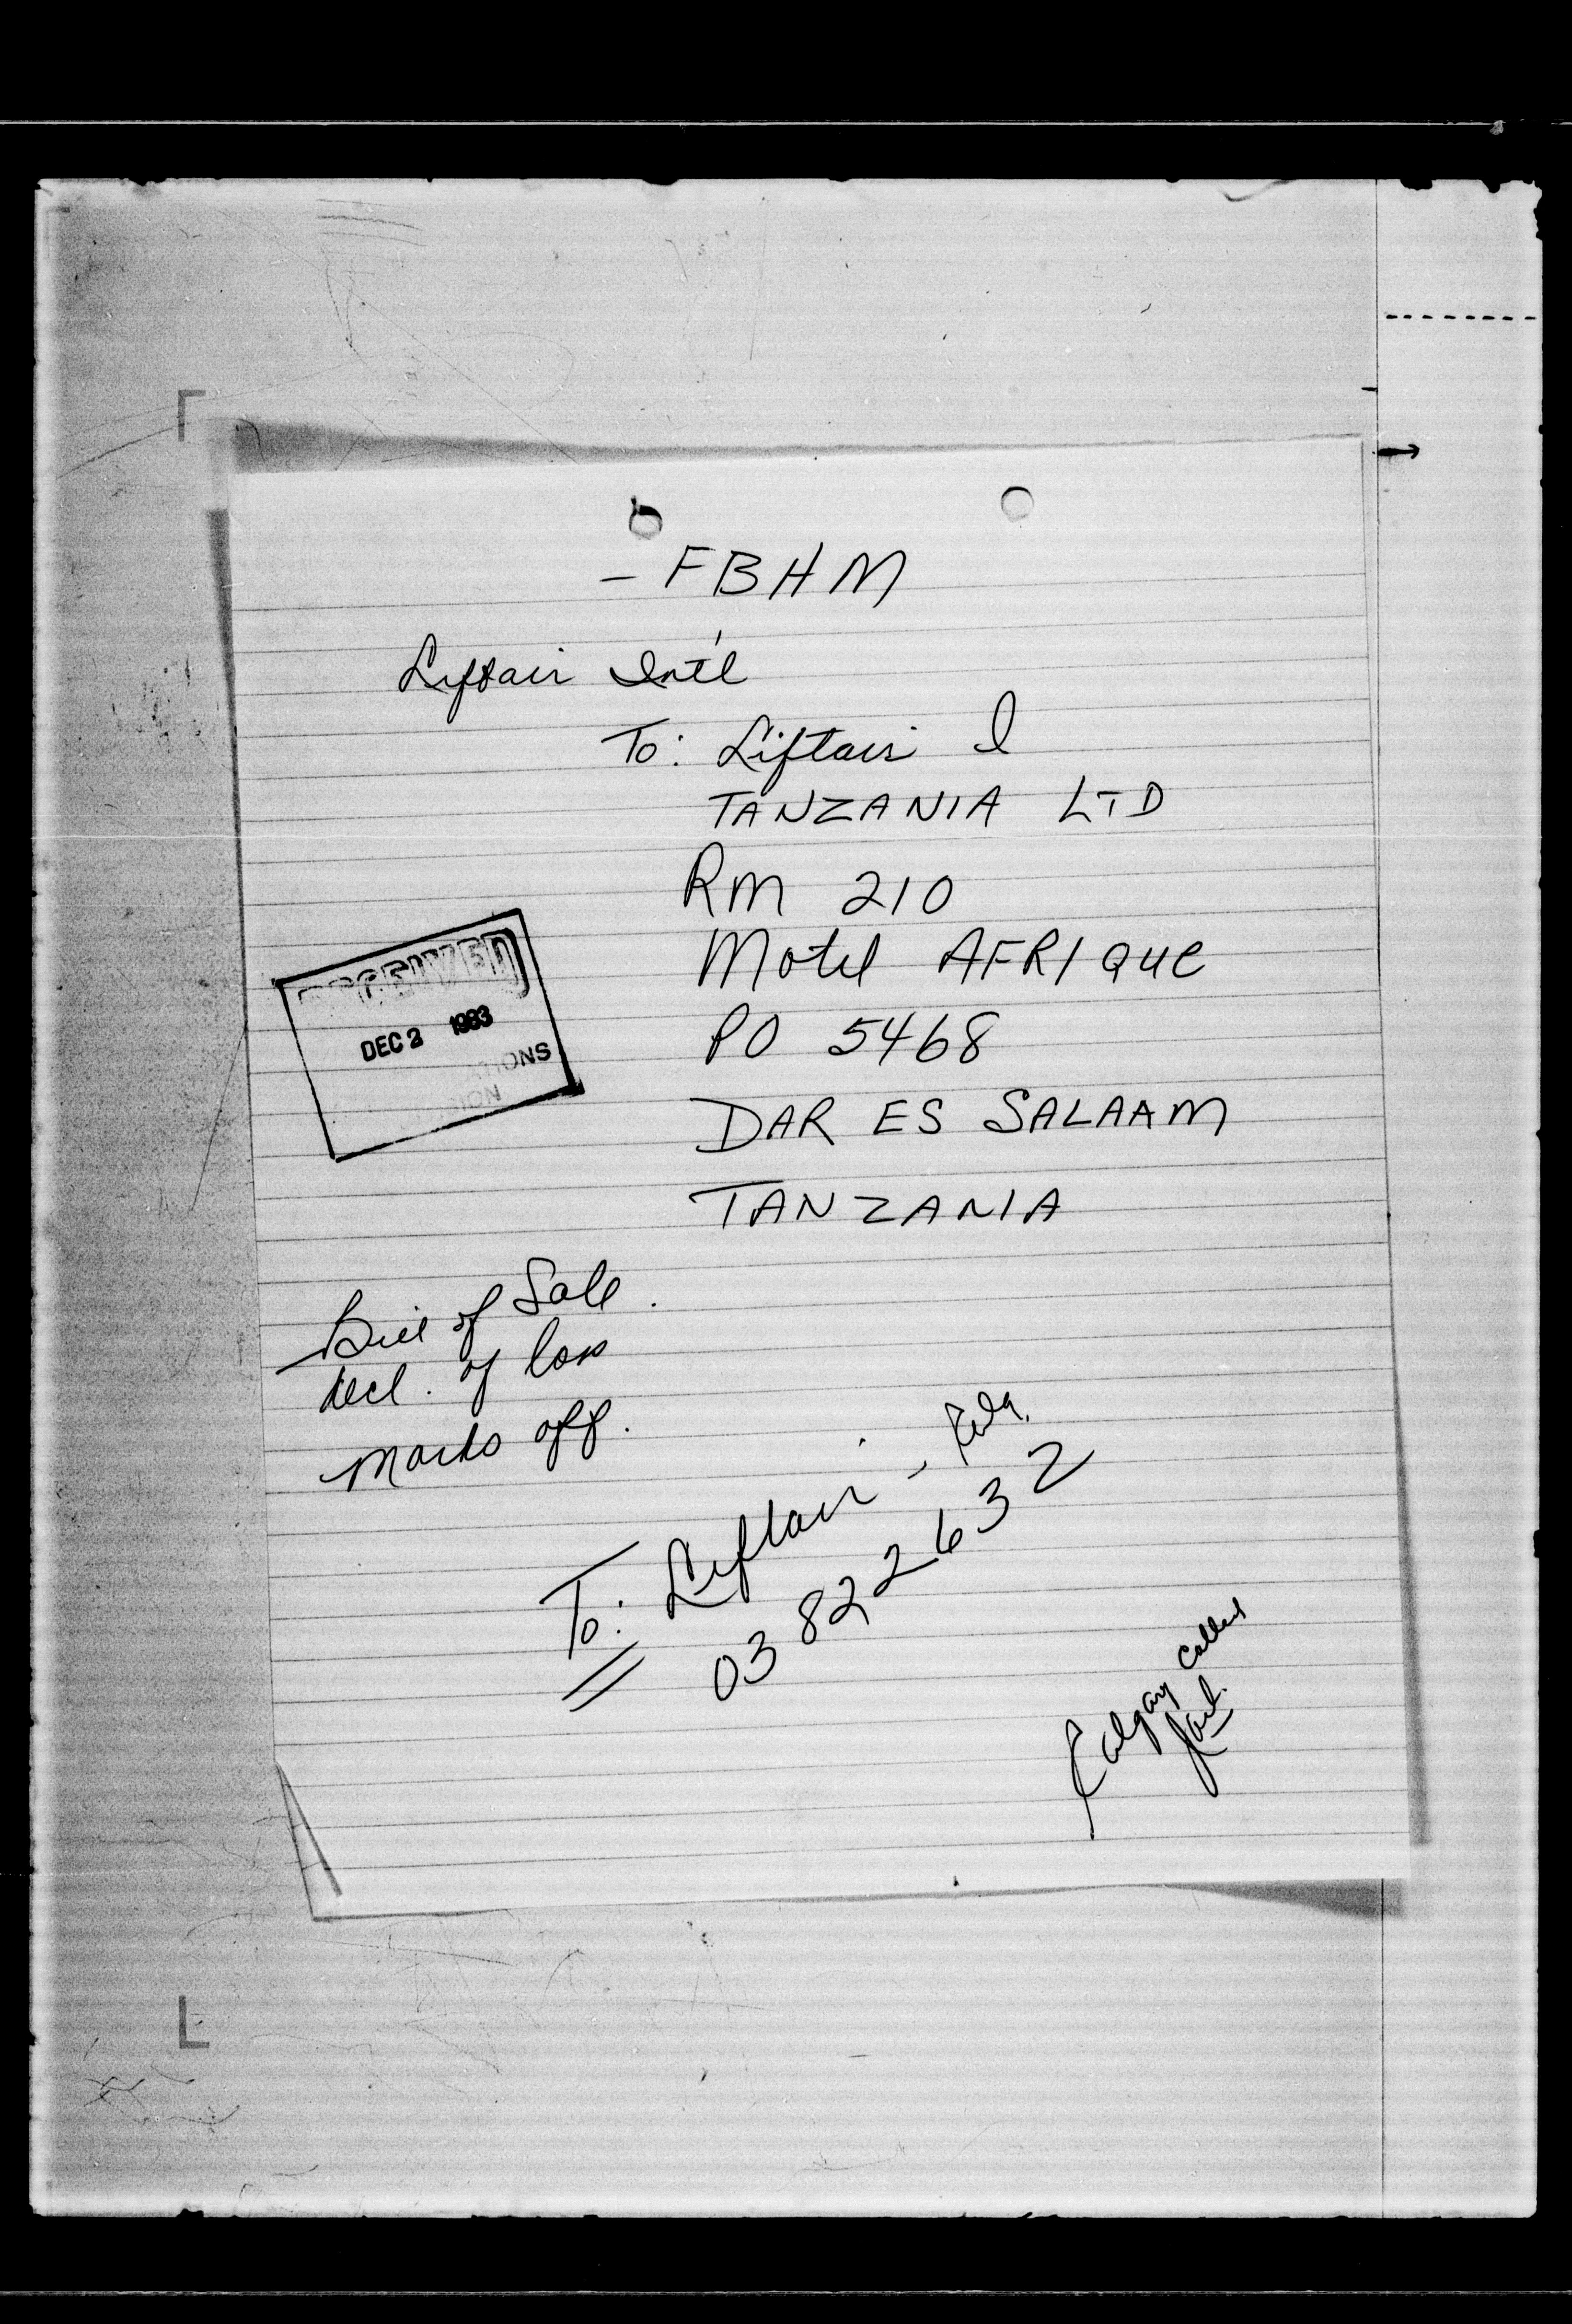 - FBHM
Liftair Int'l
To: Liftair I
TANZANIA LTD
RM 210
Motel AFRIQUE
PO 5468
DAR ES SALAAM
TANZANIA
RECEIVED
DEC 2 1983
Bill of Sale.
decl. of loss
Marks off.
To: Liftair - Calg.
03 822632
Calgary Called